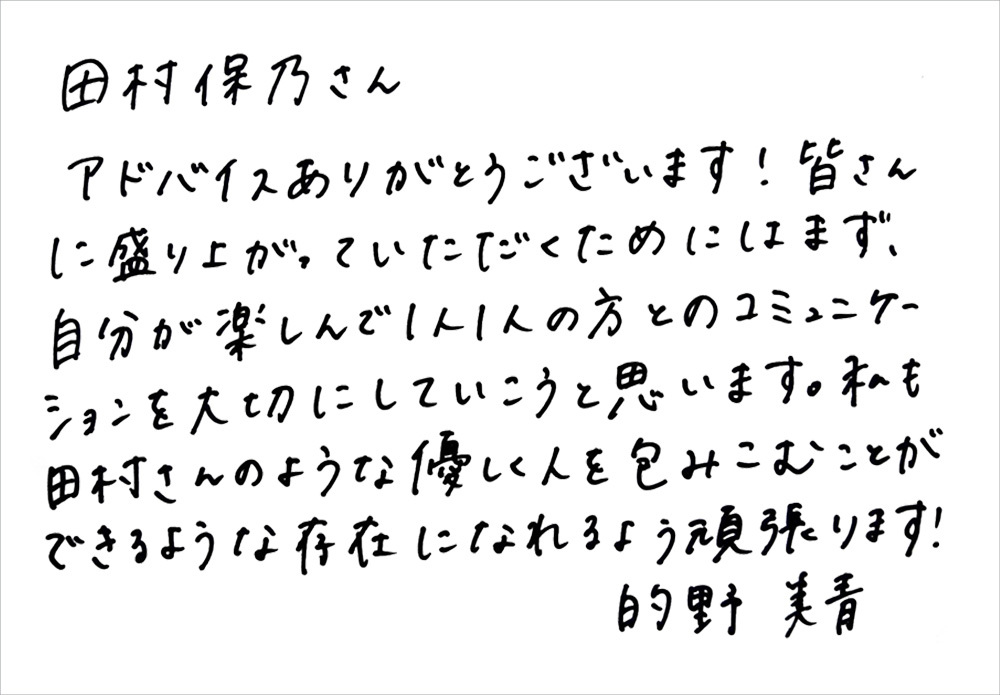 田村保乃さん
アドバイスありがとうございます!皆さん
に盛り上がっていただくためにはまず、
自分が楽しんで1人1人の方とのコミュニケー
ションを大切にしていこうと思います。私も
田村さんのような優しく人を包みこむことが
できるような存在になれるよう頑張ります!
的野 美青